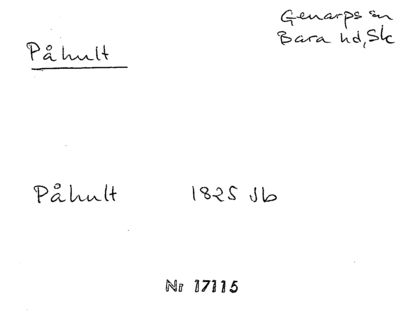 Genarps sn
Bara hd, Sk
Påhult
Påhult 1825 Jb
Nr 17115